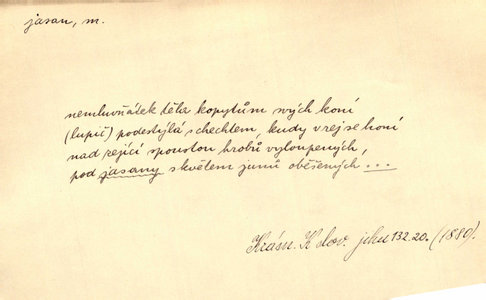 jasan, m.
nemluvňátek těla kopytům svých koní
(lupič) podestýlá s chechtem, kudy v rej se honí
nad zející spoustou hrobů vyloupených,
pod jasany s květem junů oběšených ...
Krásn. K slov. jihu 132.20. (1880).